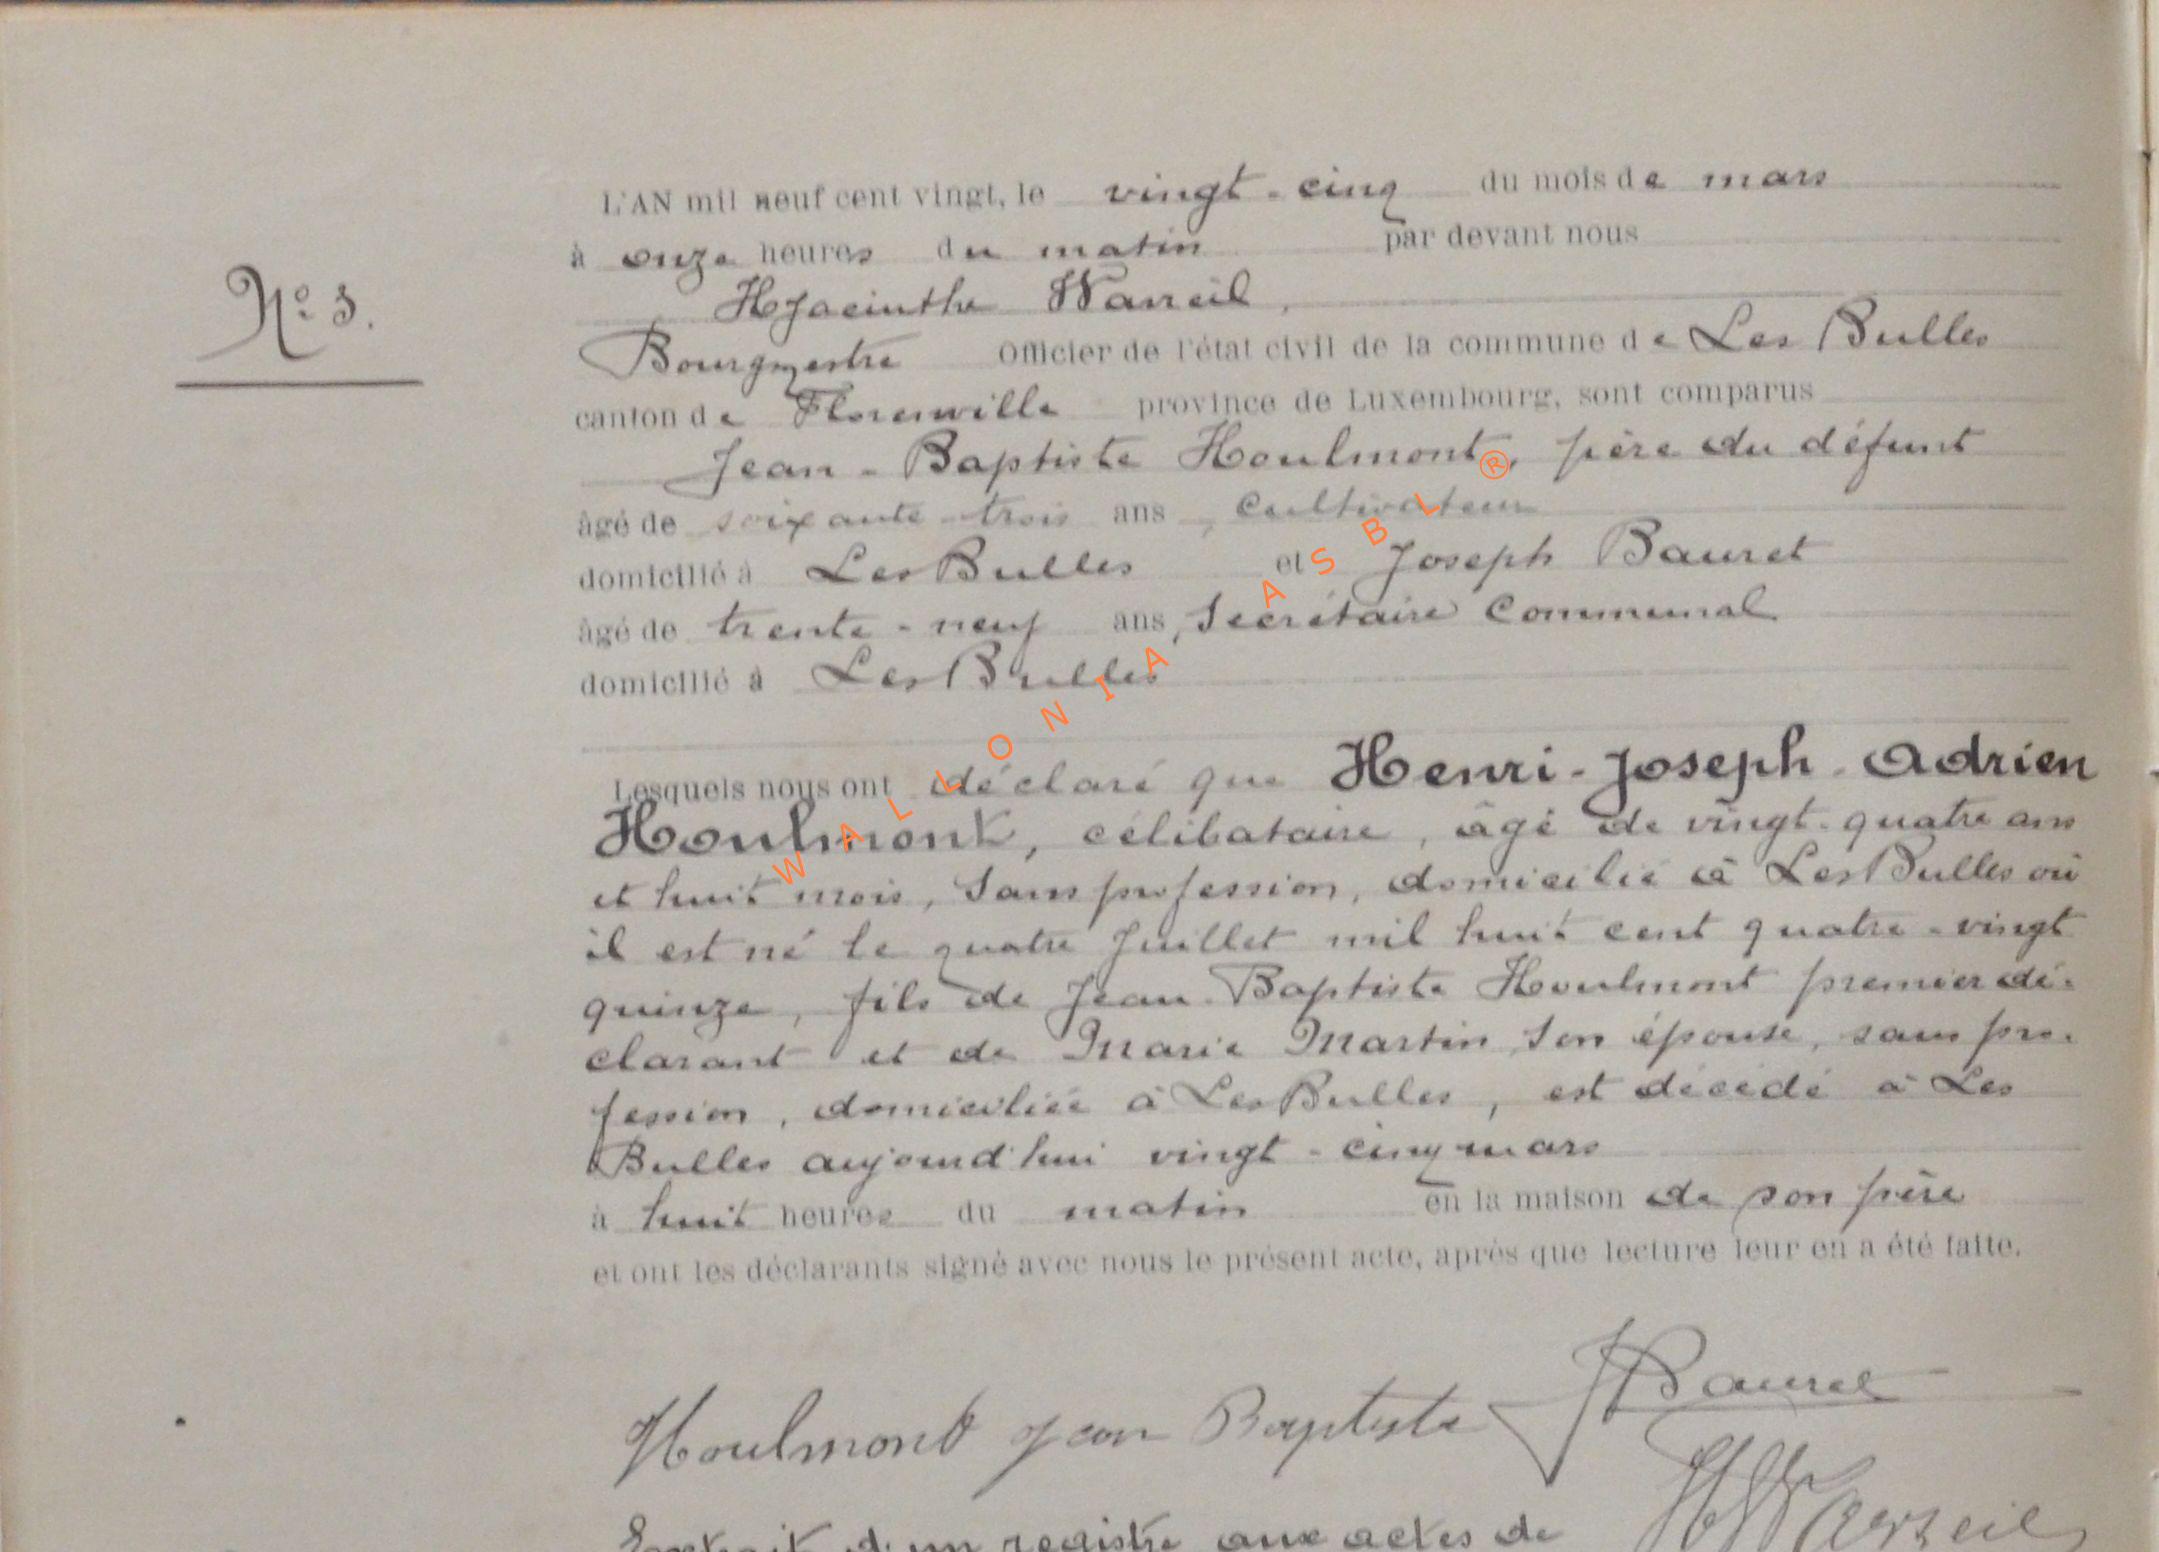 L'AN mil neuf cent vingt, le vingt-cinq du mois de mars
à onze heures du matin par devant nous
N° 3.
Hyacinthe
Bourgmestre Officier de l'état civil de la commune de Les Bulles
canton de Florenville province de Luxembourg, sont comparus
Jean-Baptiste Houlmont, père du défunt
âgé de soixante-trois ans, cultivateur
domicilié à Les Bulles et Joseph Bauret
âgé de trente-neuf ans, Secrétaire Communal
domicilié à Les Bulles
WALLONIA ASBL ®
Lesquels nous ont déclaré que Henri-Joseph-Adrien
Houlmont, célibataire, âgé de vingt-quatre ans
et huit mois, Sans profession, domicilié à Les Bulles où
il est né le quatre Juillet mil huit cent quatre-vingt
quinze, fils de Jean-Baptiste Houlmont premier dé-
clarant et de Marie Martin, Son épouse, sans pro-
fession, domiciliée à Les Bulles, est décédé à Les
Bulles aujourd'hui vingt-cinq mars
à huit heures du matin en la maison de son père
et ont les déclarants signé avec nous le présent acte, après que lecture leur en a été faite.
Houlmont Jean Baptiste JBauret
Extrait d'un registre aux actes de